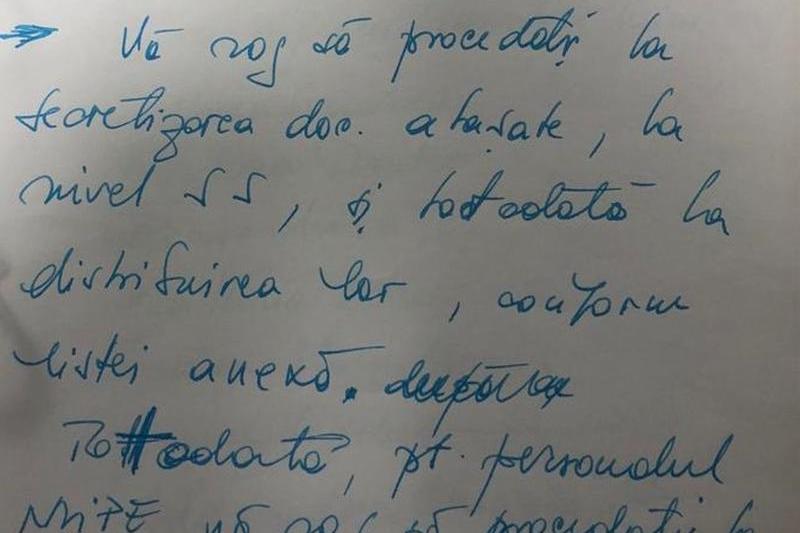 Vă rog să procedați la
secretizarea doc. atașate, la
nivel SS, și totodată la
distribuirea lor, conform
listei anexă.
Totodată, pt. personalul
MIPE vă rog să procedați la